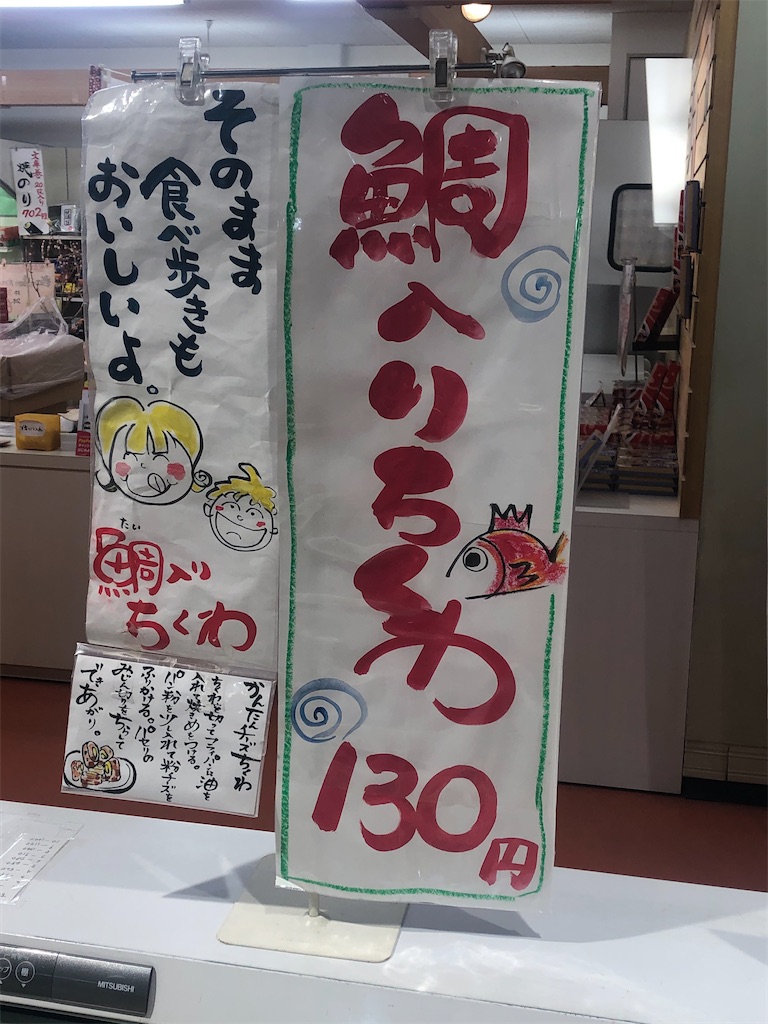 鯛入りちくわ
130円
そのまま
食べ歩きも
おいしいよ。
たい
鯛入り
ちくわ
かんたんチーズちくわ
ちくわを切ってフライパンに油を
入れて焼きめをつける。
パン粉を少々入れて粉チーズを
ふりかける。パセリの
みじん切りをちらして
できあがり。
焼のり
702
MITSUBISHI